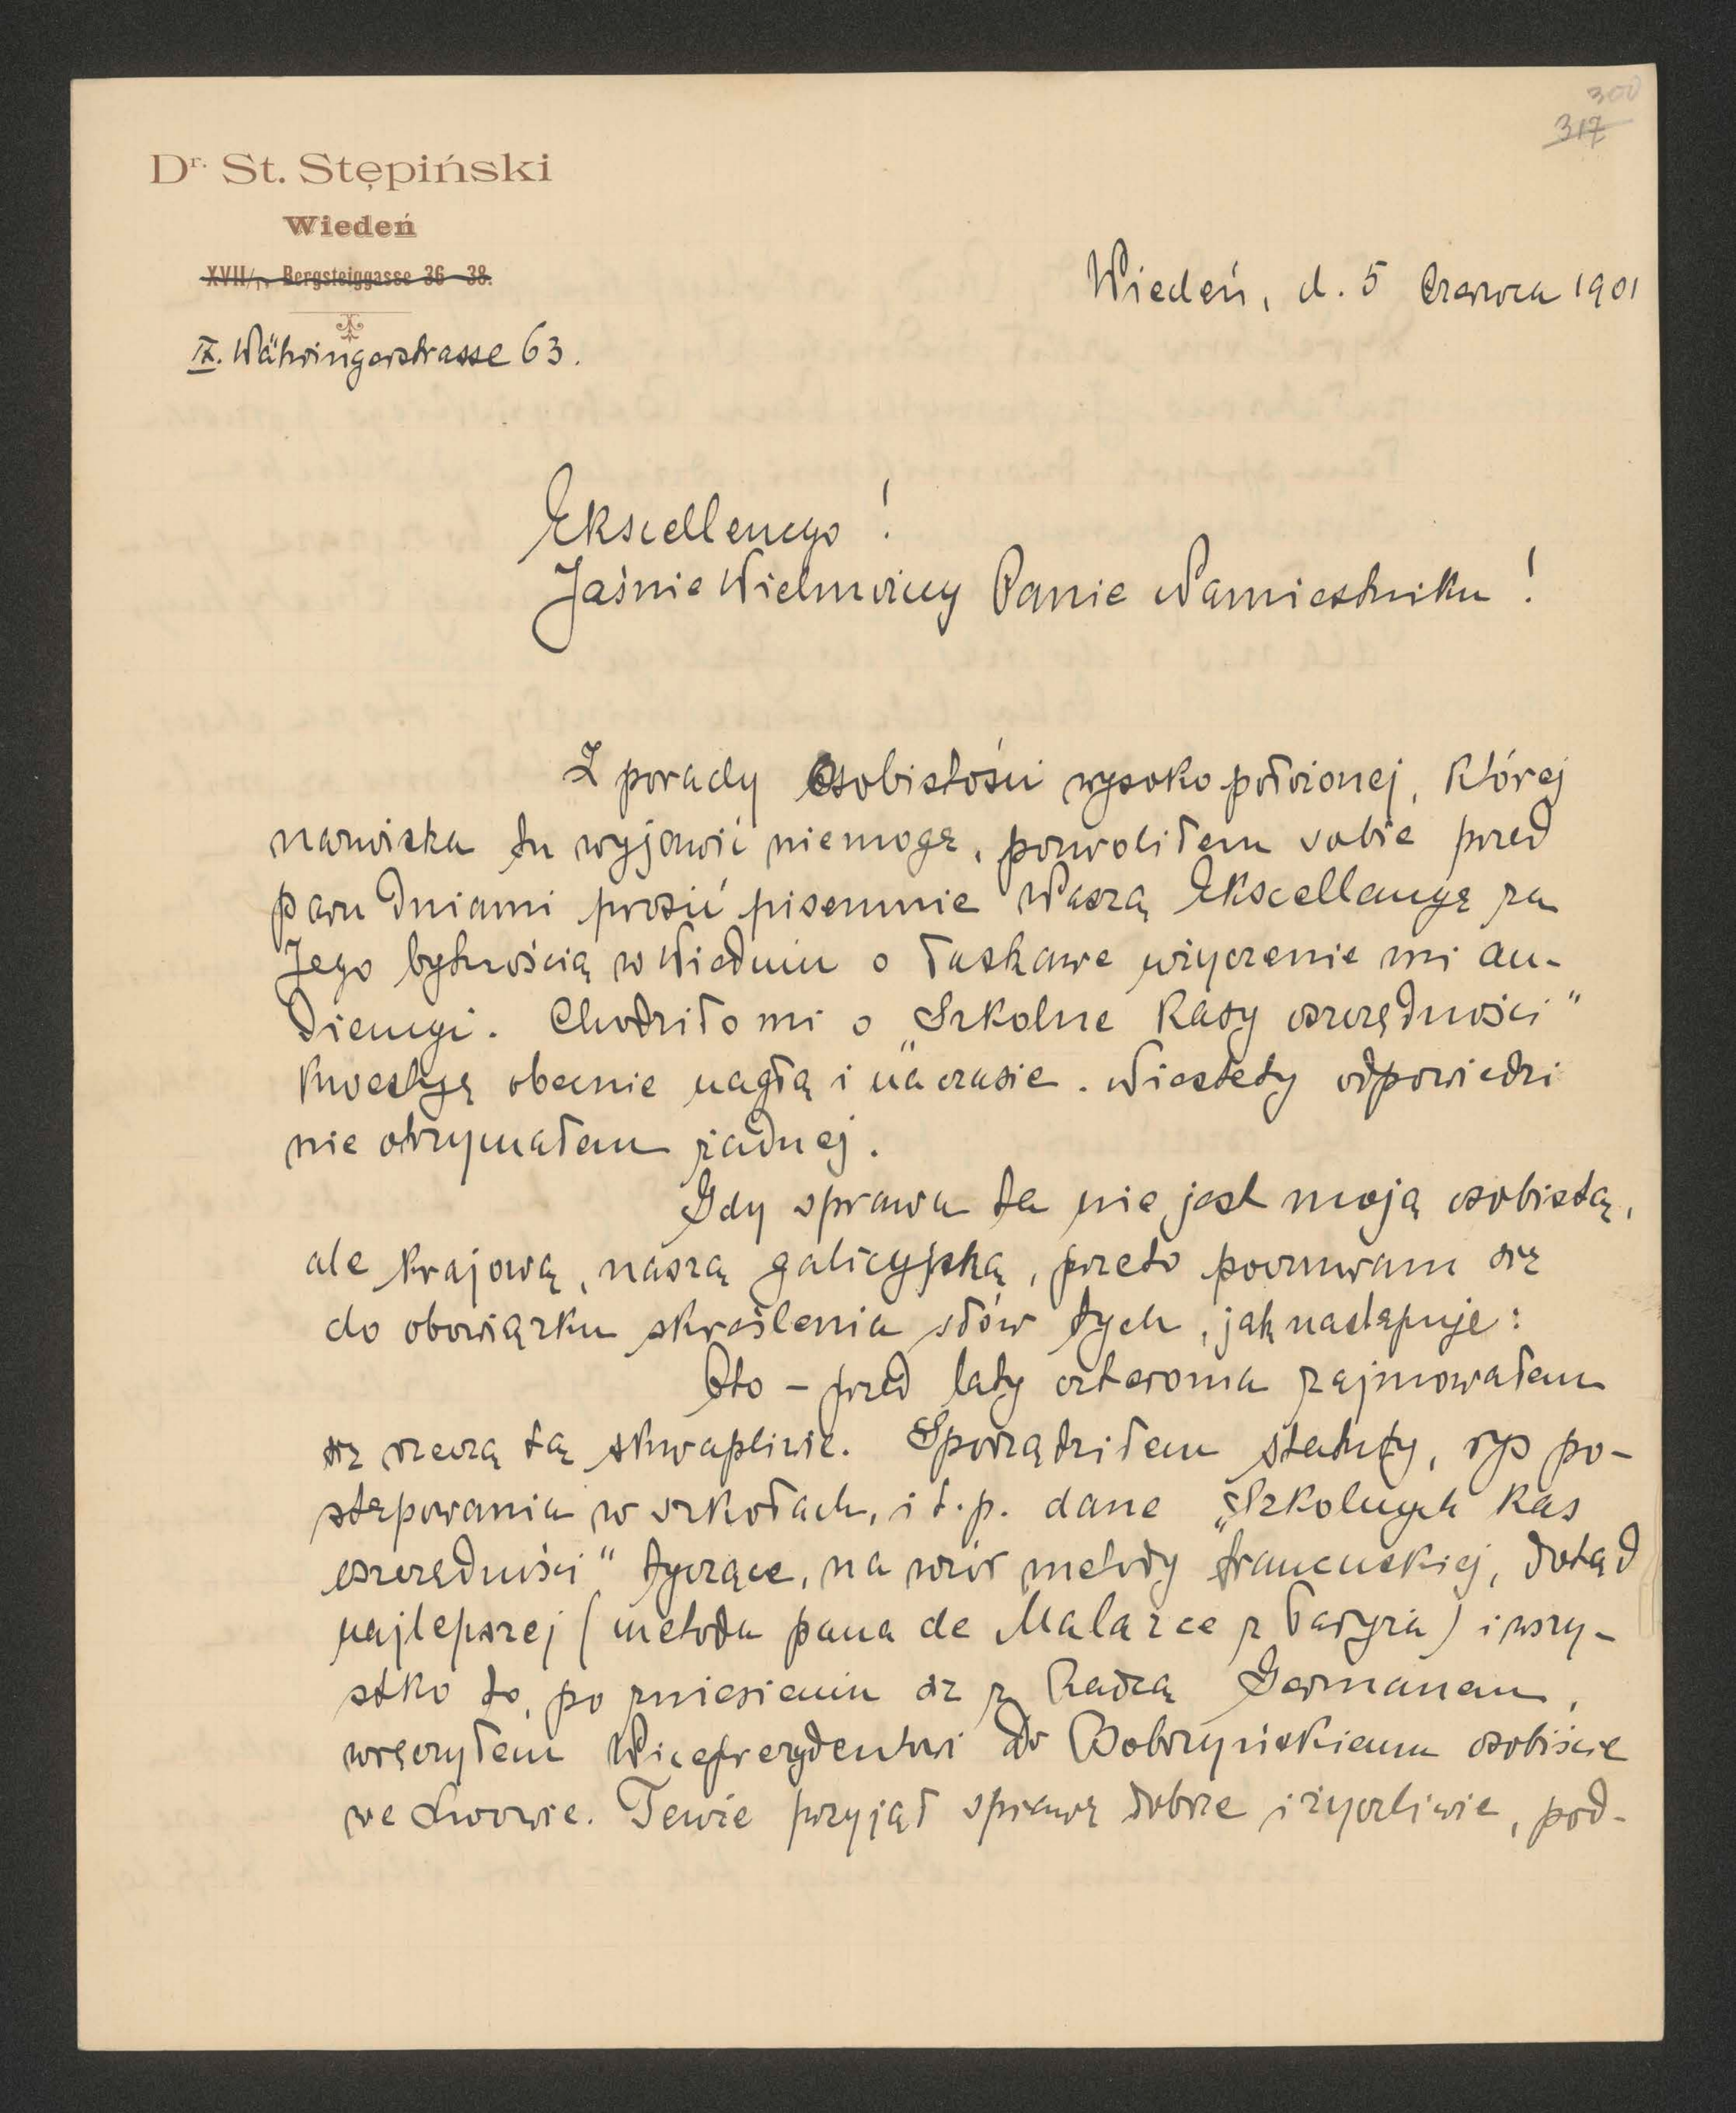 300
317
Dr. St. Stępiński
Wiedeń
XVII/1. Bergsteiggasse 36–38.
IX. Währingerstrasse 63.
Wiedeń, d. 5 Czerwca 1901
Ekscellencyo!
Jaśnie Wielmożny Panie Namiestniku!
Z porady Osobistości wysoko położonej, której
nazwiska tu wyjawić niemogę, pozwoliłem sobie przed
paru dniami prosić pisemnie Waszą Ekscellencyę za
Jego bytnością w Wiedniu o łaskawe użyczenie mi au-
diencyi. Chodziło mi o „Szkolne Kasy oszczędności"
kwestyę obecnie nagłą i „na czasie. Niestety odpowiedzi
nie otrzymałem żadnej.
Gdy sprawa ta nie jest moją osobistą,
ale krajową, naszą galicyjską, przeto poczuwam się
do obowiązku skreślenia słów tych, jak następuje:
Oto – przed laty czterema zajmowałem
się rzeczą tą skwapliwie. Sporządziłem statuty, rys po-
stępowania w szkołach, i t. p. dane „Szkolnych Kas
oszczędności" tyczące, na wzór metody francuskiej, dotąd
najlepszej (metoda pana de Malarce z Paryża) i wszy-
stko to, po zniesieniu się z Radcą Germanem,
wręczyłem Wiceprezydentowi Dr Bobrzyńskiemu osobiście
we Lwowie. Tenże przyjął sprawę dobrze i życzliwie, pod-